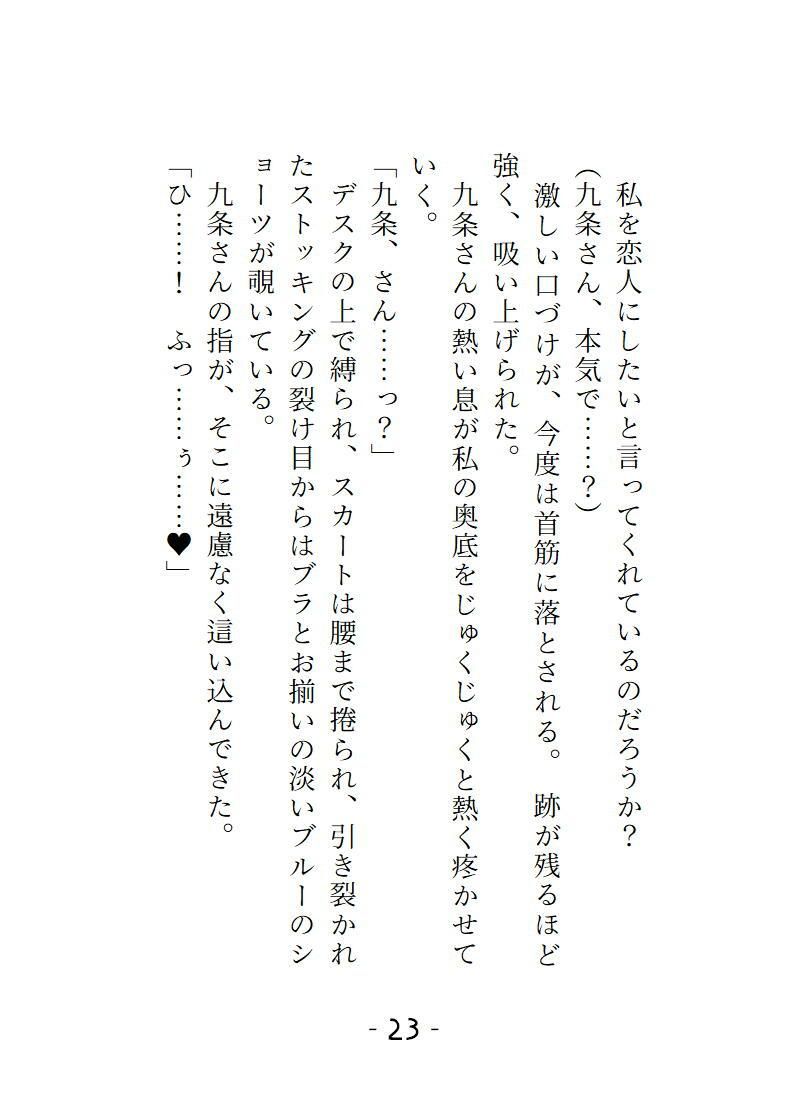 私を恋人にしたいと言ってくれているのだろうか？
（九条さん、本気で……？）
激しい口づけが、今度は首筋に落とされる。　跡が残るほど
強く、吸い上げられた。
九条さんの熱い息が私の奥底をじゅくじゅくと熱く疼かせて
いく。
「九条、さん……っ？」
デスクの上で縛られ、スカートは腰まで捲られ、引き裂かれ
たストッキングの裂け目からはブラとお揃いの淡いブルーのシ
ョーツが覗いている。
九条さんの指が、そこに遠慮なく這い込んできた。
「ひ……！　ふっ……ぅ……♥」
- 23 -